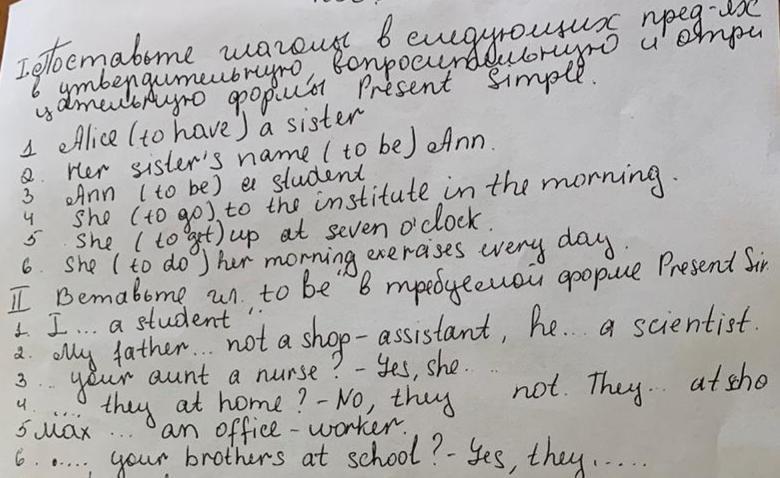 I. Поставьте глаголы в следующих пред-ях
в утвердительную, вопросительную и отри
цательную формы Present Simple.
1 Alice (to have) a sister
2. Her sister's name (to be) Ann.
3 Ann (to be) a student
4 She (to go) to the institute in the morning.
5 She (to get) up at seven o'clock.
6. She (to do) her morning exercises every day.
II Вставьте гл. "to be" в требуемой форме Present Sim
1. I... a student
2. My father... not a shop-assistant, he... a scientist.
3 ... your aunt a nurse? - Yes, she...
4 .... they at home? - No, they not. They... at sho
5 Max ... an office-worker.
6. ..... your brothers at school? - Yes, they.....